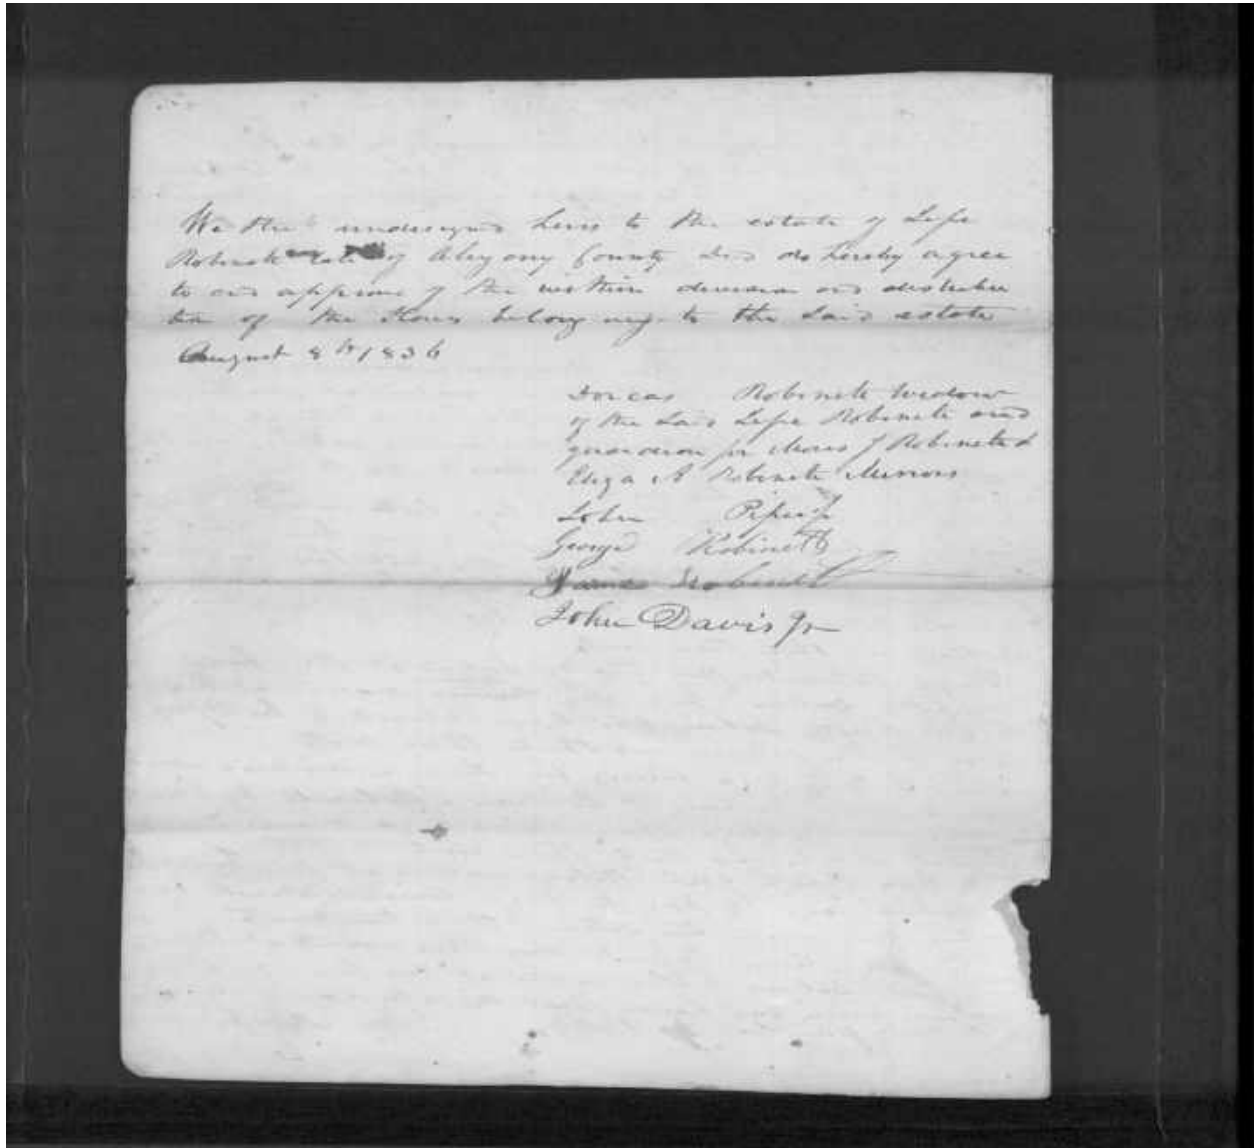 We the undersigned heirs to the estate of Jesse
Robinett late of Allegany County decd do hereby agree
to and approve of the within division and distribu
tion of the slaves belonging to the said estate
August 8th 1836
Dorcas Robinett widow
of the said Jesse Robinett and
guardian for Moses J Robinett &
Eliza A Robinett Minors
John Piper
George Robinett
James Robinett
John Davis Jr